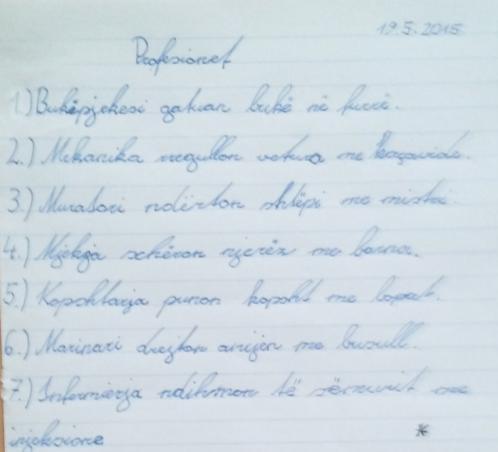 19.5.2015
Profesionet
1.) Bukëpjekësi gatuan bukë në furrë.
2.) Mekanika rregullon vetura me kaçavida.
3.) Muratori ndërton shtëpi me mistri.
4.) Mjekja shëron njerëz me barna.
5.) Kopshtarja punon kopsht me lopat.
6.) Marinari drejton anijen me busull.
7.) Infermierja ndihmon të sëmurit me
injeksione
*